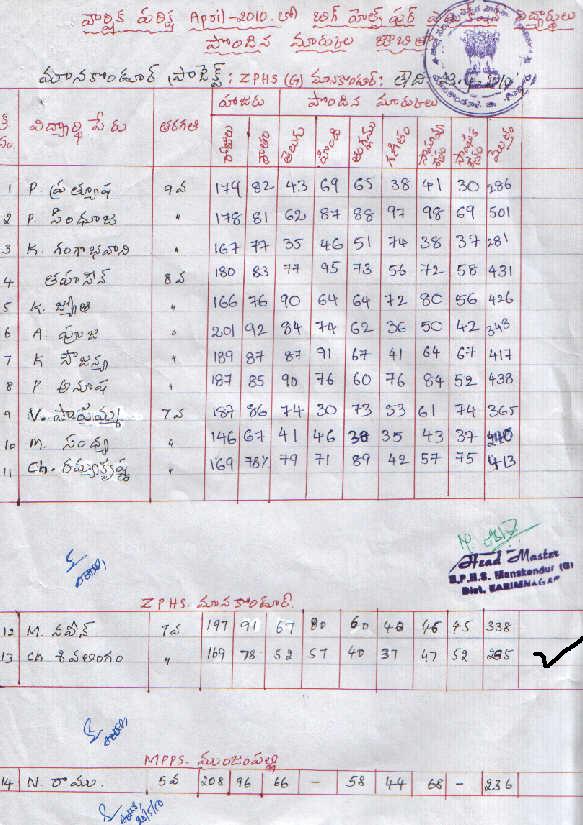 వార్షిక పరీక్ష April-2010. లో బిగ్ హెల్ప్ ఫర్ విద్యార్థులు
పొందిన మార్కుల
మానకొండూర్ ZPHS (G) మానకొండూర్:
హాజరు పొందిన మార్కులు
విద్యార్థి పేరు తరగతి హాజరు శాతం తెలుగు హిందీ ఇంగ్లీషు గణితం మొత్తం
1 P. ప్రత్యూష 9వ 174 82 43 69 65 38 41 30 286
2 P. సింధూజ " 178 81 62 87 88 97 98 69 501
3 K. గంగాభవాని " 167 77 35 46 51 74 38 37 281
4 తహసీన్ 8వ 180 83 77 95 73 56 72 58 431
5 K. జ్యోతి " 166 76 90 64 64 72 80 56 426
6 A. పూజ " 201 92 84 74 62 36 50 42 348
7 K సౌజన్య " 189 87 87 91 67 41 64 67 417
8 P అనూష " 187 85 90 76 60 76 84 52 438
9 N. 7వ 187 86 74 30 73 53 61 74 365
10 M. సంధ్య " 146 67 41 46 38 35 43 37 240
11 Ch. రమ్యకృష్ణ " 169 78% 79 71 89 42 57 75 413
Head Master
Z.P.H.S. Manakondur (G)
Dist. KARIMNAGAR
ZPHS. మానకొండూర్.
12 M. నవీన్ 7వ 197 91 67 80 60 46 45 338
13 Ch. శివలింగం " 169 78 52 57 40 37 47 52 285
MPPS. ముంజంపల్లి
14 N. రాము. 5వ 208 96 66 - 58 44 68 - 236